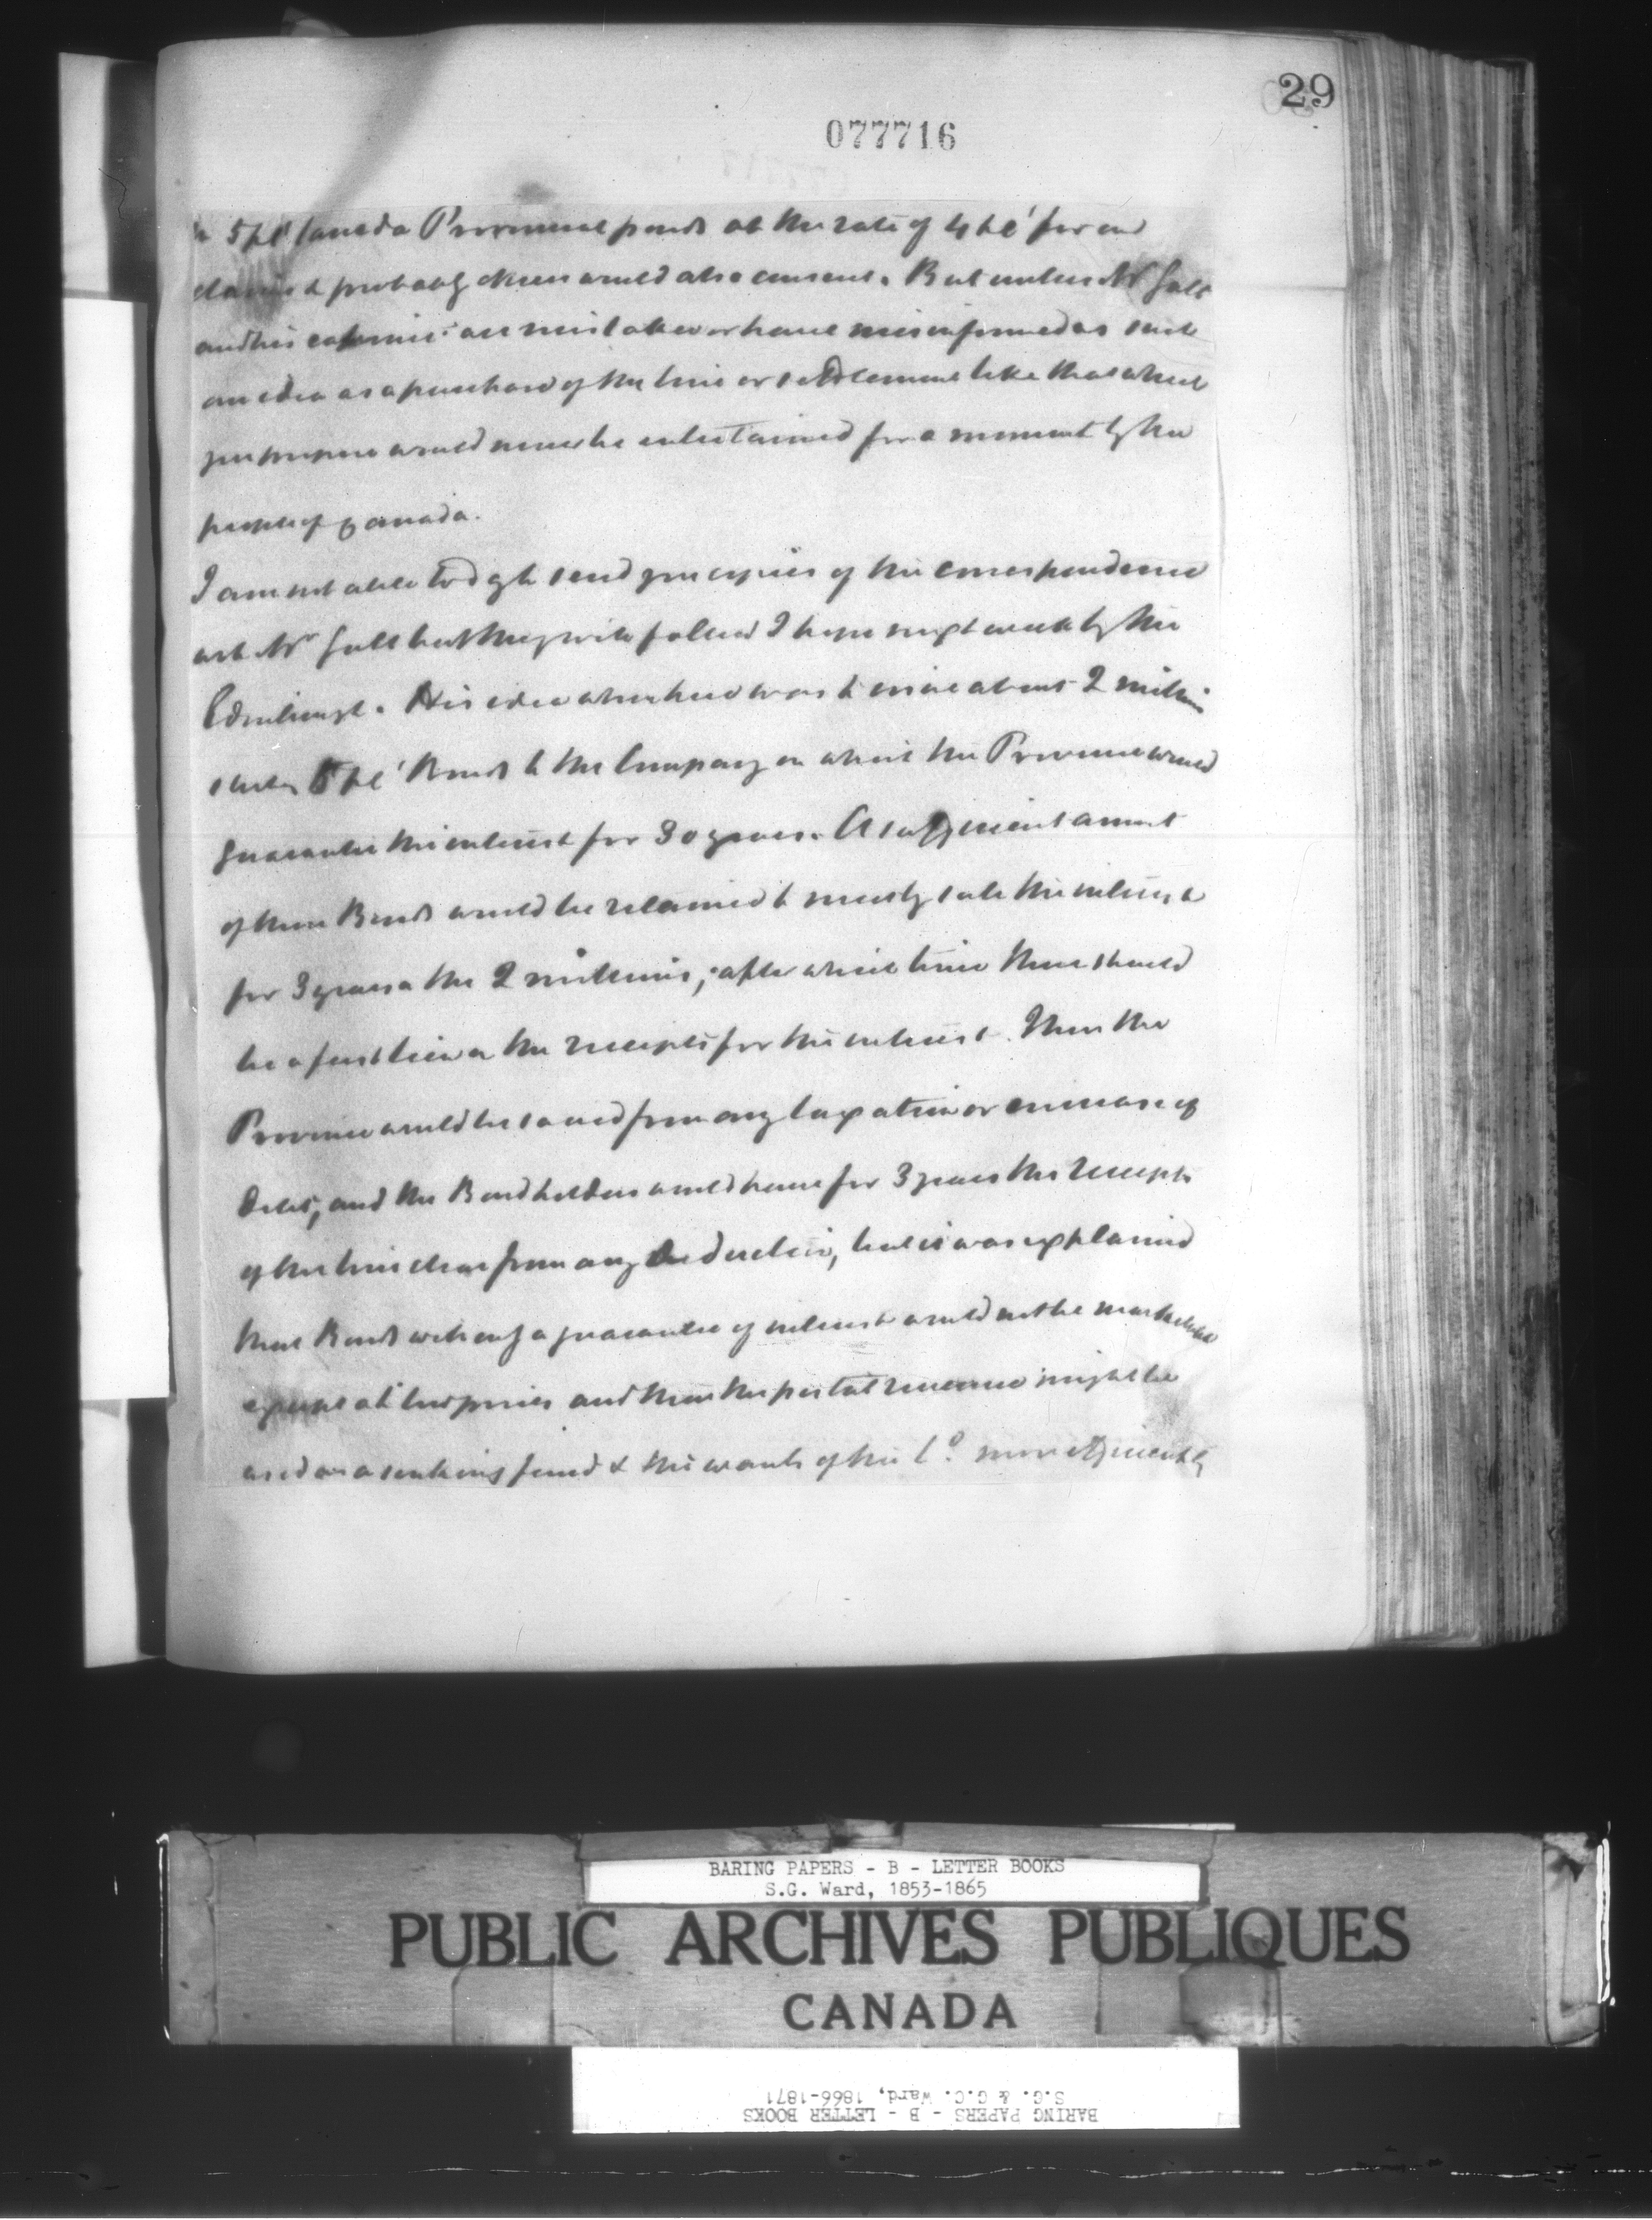 29
077716
in 5 pCt Canada Provincial funds at the rate of 4 pCt for our
claims & probably others would also consent. But unless Mr Galt
and his are mistaken or have misinformed us such
an idea as a purchase of the line or settlement like that which
you propose would never be entertained for a moment by the
people of Canada.
I am not able to send you copies of the correspondence
with Mr Galt but they will follow I hope next week by the
Edinburgh. His idea when here was to issue about 2 millions
5 pCt Bonds to the Company on which the Province would
guarantee the interest for 30 years. A sufficient amount
of these Bonds would be retained to meet by sale the interest
for 3 years on the 2 millions, after which time there should
be a first lien on the receipts for the interest. Thus the
Province would be saved from any taxation or increase of
Debt, and the Bondholders would have for 3 years the receipts
of the line clear from any deduction, but it was explained
these Bonds with only a guarantee of interest would not be marketable
except at low prices and that the postal revenue might be
used as a sinking fund & the wants of the Co. more efficiently
BARING PAPERS - B - LETTER BOOKS
S.G. Ward, 1853-1865
PUBLIC ARCHIVES PUBLIQUES
CANADA
BARING PAPERS - B - LETTER BOOKS
S.G. & G.C. Ward, 1866-1871